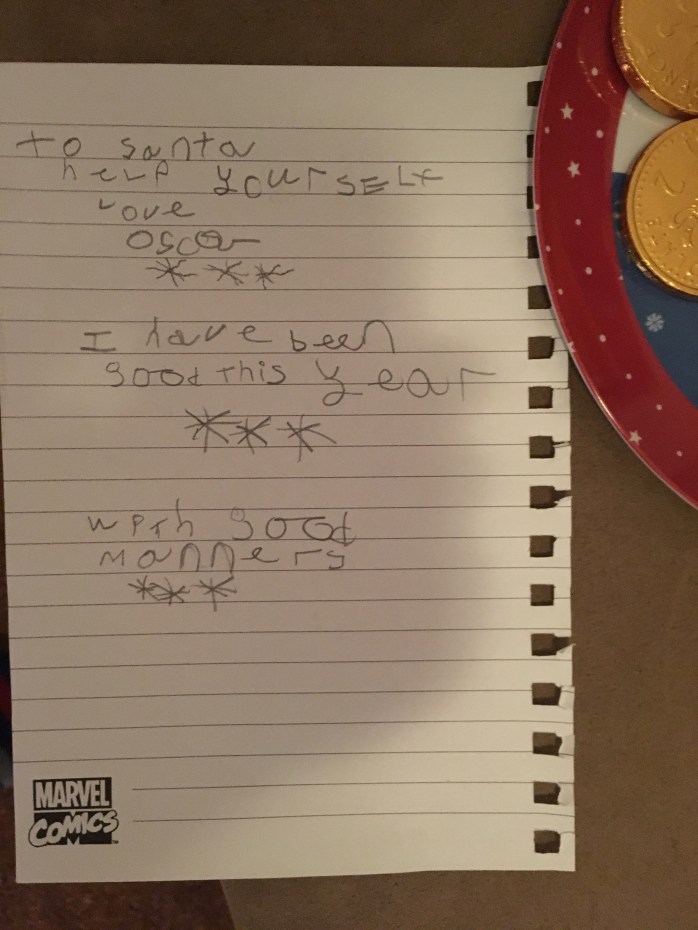 to santa
help yourself
Love
oscar
I have been
good this year
with good
manners
MARVEL
COMICS